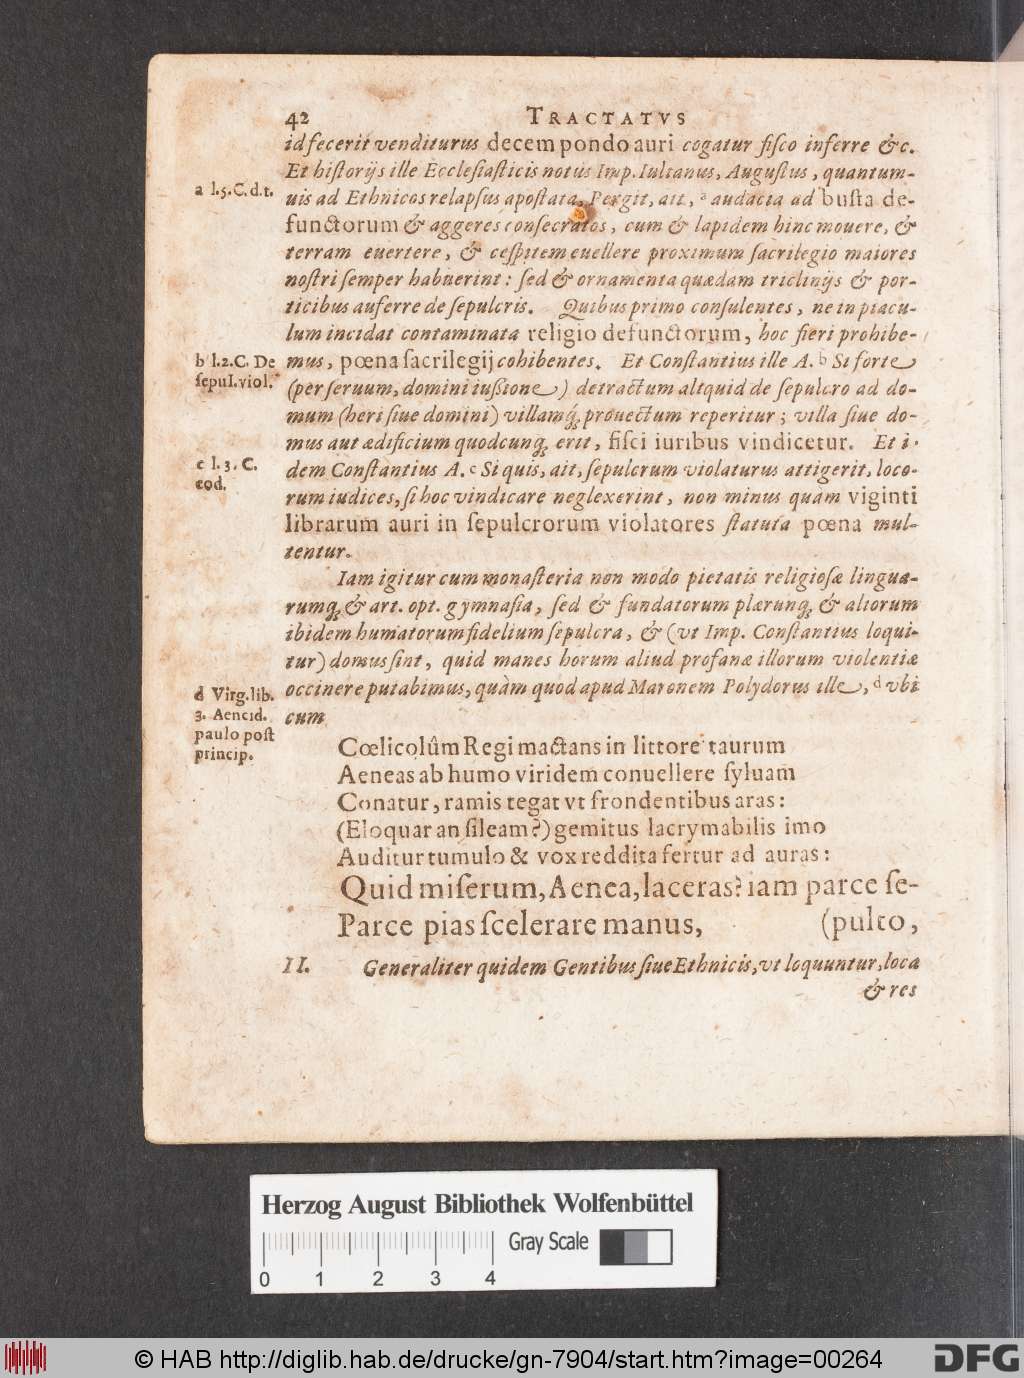 42 TRACTATVS
id fecerit venditurus decem pondo auri cogatur fiſco inferre &c.
Et hiſtorijs ille Eccleſiaſticis notus Imp. Iulianus, Auguſtus, quantum-
a l.5.C.d.t.
uis ad Ethnicos relapſus apoſtata, Pergit, ait, ª audacia ad buſta de-
functorum & aggeres conſecratos, cum & lapidem hinc mouere, &
terram euertere, & ceſpitem euellere proximum ſacrilegio maiores
noſtri ſemper habuerint: ſed & ornamenta quædam triclinijs & por-
ticibus auferre de ſepulcris. Quibus primo conſulentes, ne in piacu-
lum incidat contaminata religio defunctorum, hoc fieri prohibe-
b l.2.C. De
ſepul.viol.
mus, pœna ſacrilegij cohibentes. Et Conſtantius ille A. b Si forte
(per ſeruum, domini iuſsione) detractum aliquid de ſepulcro ad do-
mum (heri ſiue domini) villamq́; prouectum reperitur; villa ſiue do-
mus aut ædificium quodcunq; erit, fiſci iuribus vindicetur. Et i-
c l.3.C.
eod.
dem Conſtantius A. c Si quis, ait, ſepulcrum violaturus attigerit, loco-
rum iudices, ſi hoc vindicare neglexerint, non minus quàm viginti
librarum auri in ſepulcrorum violatores ſtatuta pœna mul-
tentur.
Iam igitur cum monaſteria non modo pietatis religioſæ lingua-
rumq; & art. opt. gymnaſia, ſed & fundatorum plærunq; & aliorum
ibidem humatorum fidelium ſepulcra, & (vt Imp. Conſtantius loqui-
tur) domus ſint, quid manes horum aliud profanæ illorum violentiæ
d Virg.lib.
3. Aeneid.
paulo poſt
princip.
occinere putabimus, quàm quod apud Maronem Polydorus ille, d vbi
cum
Cœlicolûm Regi mactans in littore taurum
Aeneas ab humo viridem conuellere ſyluam
Conatur, ramis tegat vt frondentibus aras:
(Eloquar an ſileam?) gemitus lacrymabilis imo
Auditur tumulo & vox reddita fertur ad auras:
Quid miſerum, Aenea, laceras? iam parce ſe-
Parce pias ſcelerare manus, (pulto,
II. Generaliter quidem Gentibus ſiue Ethnicis, vt loquuntur, loca
& res
Herzog August Bibliothek Wolfenbüttel
Gray Scale
0 1 2 3 4
© HAB http://diglib.hab.de/drucke/gn-7904/start.htm?image=00264
DFG